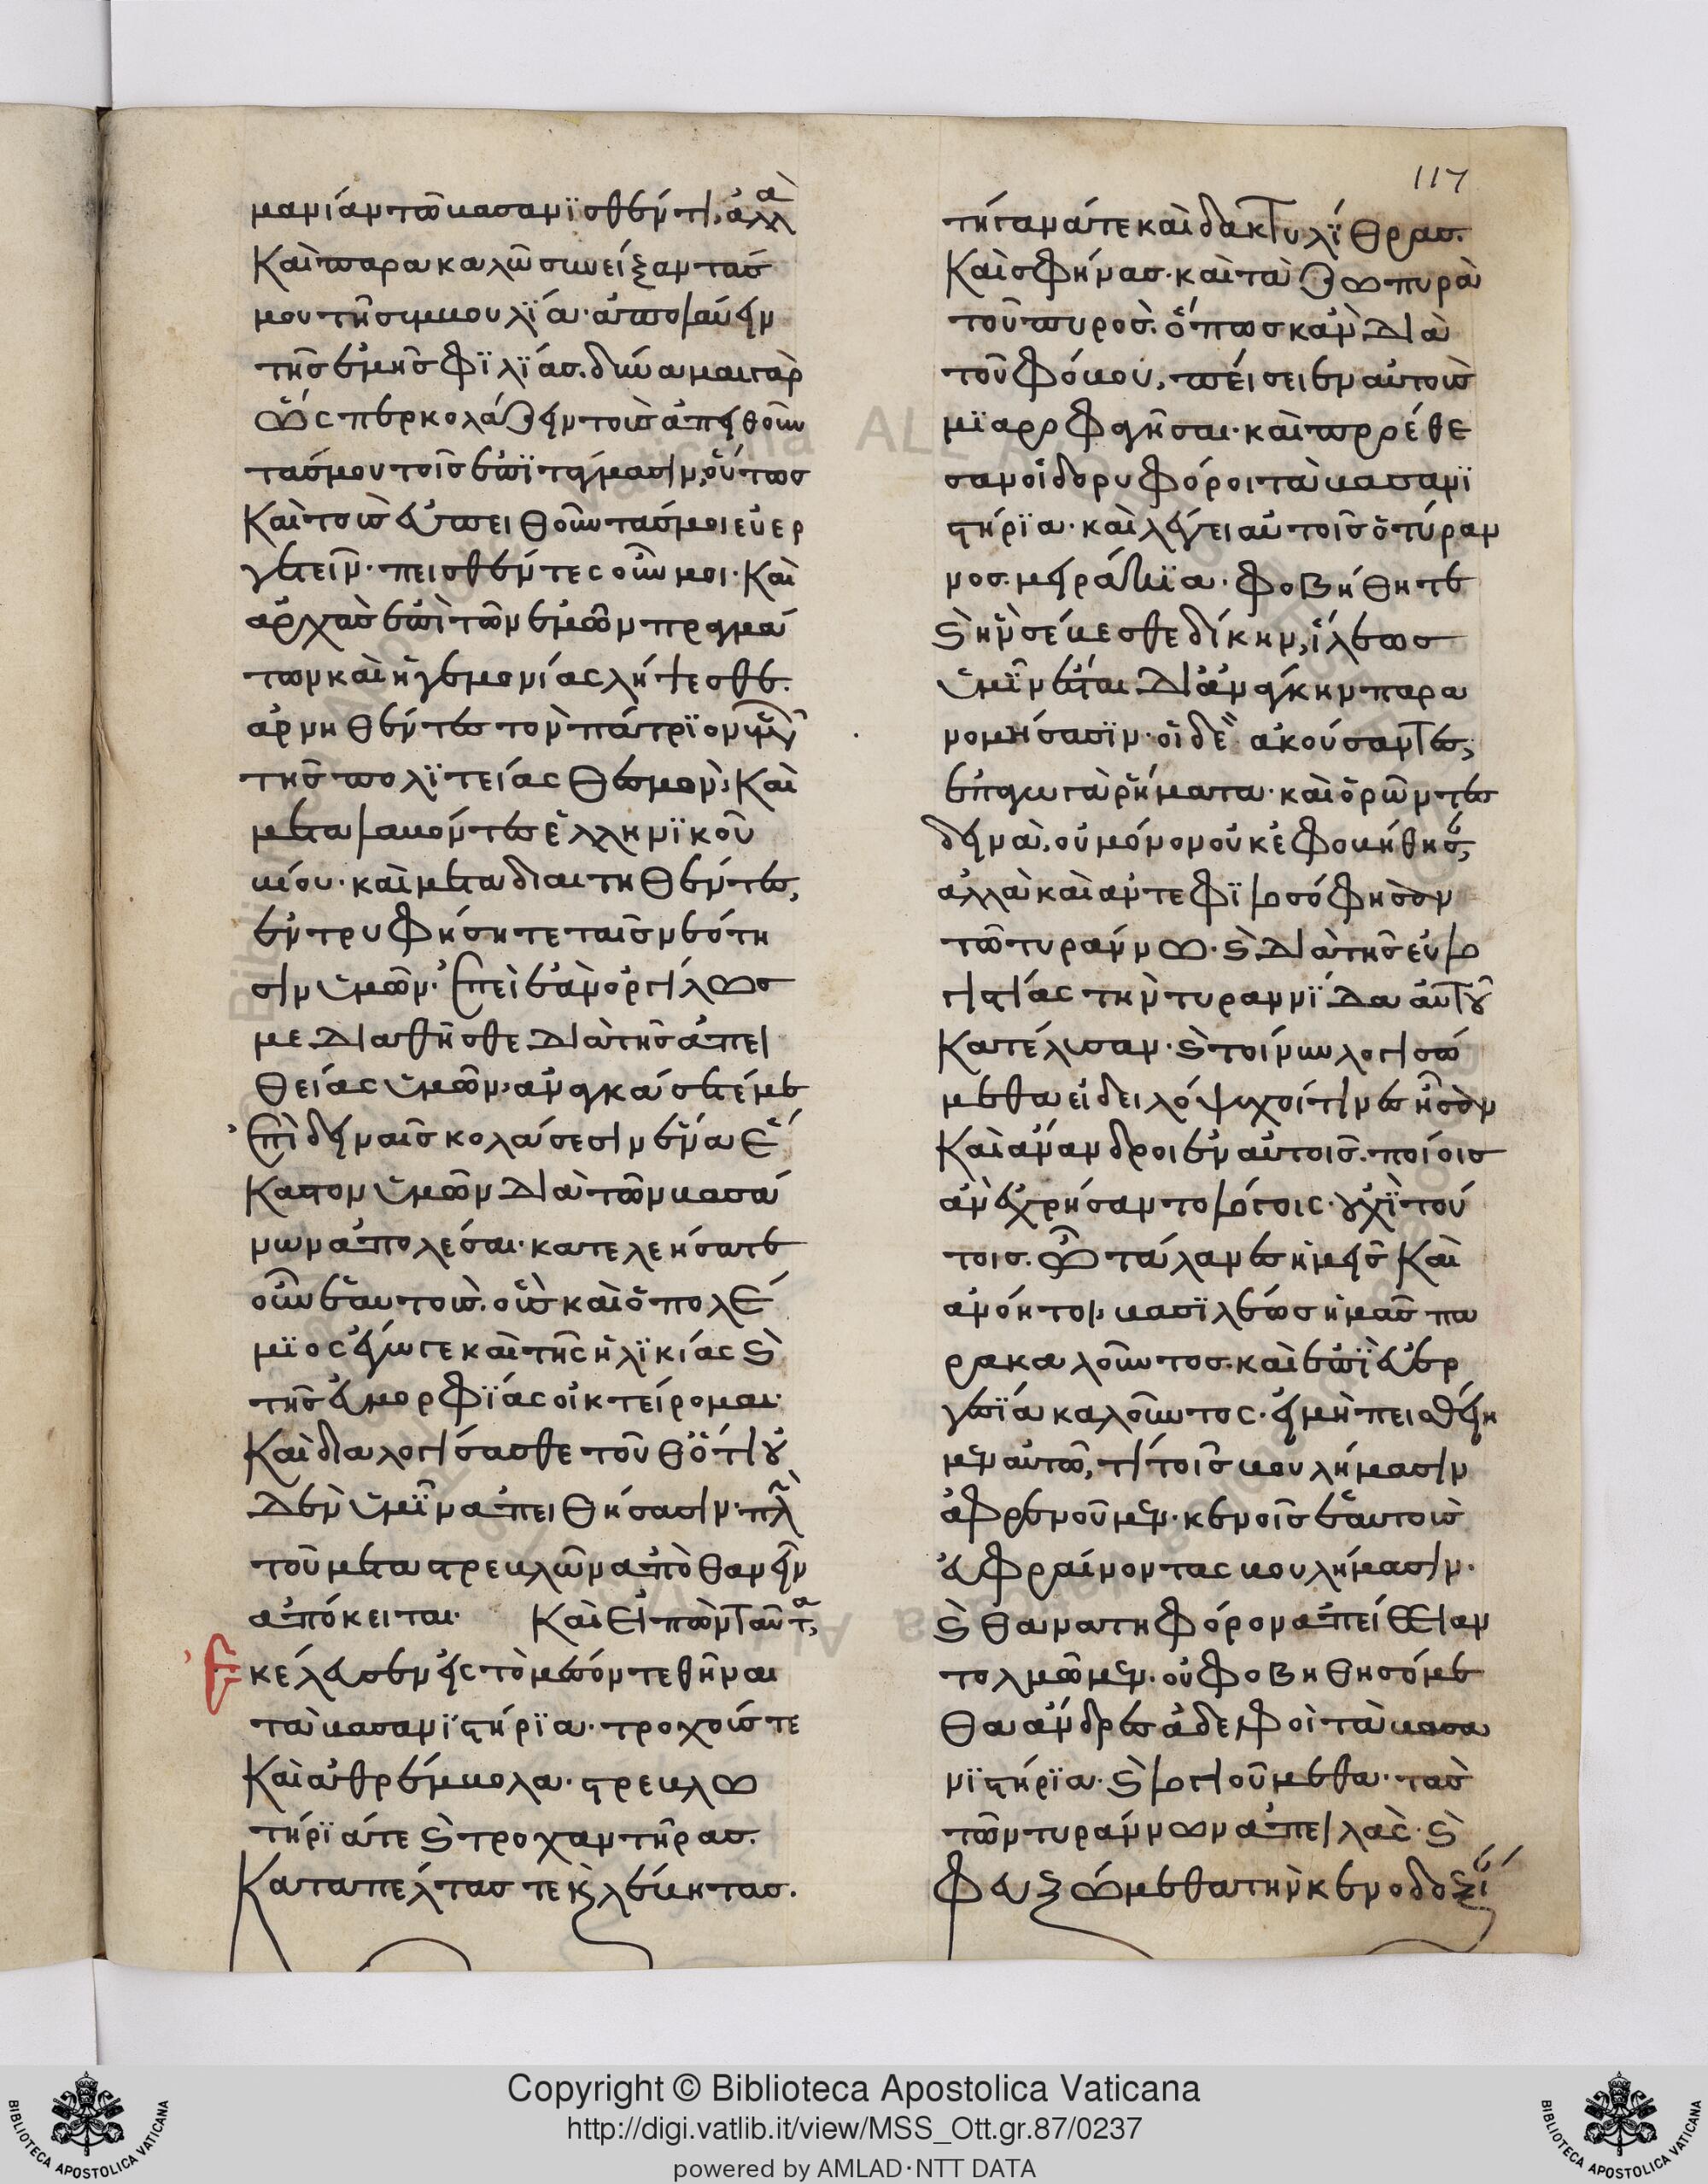 μανίαν τῶ βασανϊσθέντι, ἀλλὰ
Καὶ παρακαλῶ συνείξαντάς
μου τῆ συμβουλϊα· ἀπολαύειν
τῆς ἐμῆς φϊλϊας. δύναμαι γὰρ
ὥσπερ κολάζειν τοὺς ἀπειθοῦν
τάς μου τοῖς ἐπϊτάγμασιν, οὕτως
Καὶ τοὺς εὐπειθοῦντάς μοι εὐερ
γετεῖν· πεισθέντες οὖν μοι· Καὶ
ἀρχὰς ἐπὶ τῶν ἐμῶν πραγμά
των καὶ ἡγεμονίας λήψεσθε.
ἀρνηθέντες τὸν πάτρϊον ὑμῶν
τῆς πολϊτείας θεσμὸν, Καὶ
μεταλαβόντες ἑλληνϊκοῦ
βίου· καὶ μεταδιαιτηθέντες,
ἐντρυφήσητε ταῖς νεότη
σιν ὑμῶν· ἐπεὶ ἐὰν ὀργίλως
με διαθῆσθε διὰ τῆς ἀπει
θείας ὑμῶν, ἀναγκάσετέ με
ἐπὶ δειναῖς κολάσεσιν ἕνα ἕ
Καστον ὑμῶν διὰ τῶν βασά
νων ἀπολέσαι· κατελεήσατε
οὖν ἑαυτοὺς. οὓς καὶ ὁ πολέ
μϊος ἔγωγε καὶ τῆς ἡλϊκίας ϗ
τῆς εὐμορφϊας οἰκτείρομαι·
Καὶ διαλογίσασθε τοῦθ ὅτι οὐ
δὲν ὑμῖν ἀπειθήσασιν· πλὴν
τοῦ μετὰ στρεβλῶν ἀποθανεῖν
ἀπόκειται· Καὶ εἰπὼν ταῦτα,
ἐκέλευσεν εἰς τὸ μέσον τεθῆναι
τὰ βασανϊστήρϊα· τροχούς τε
Καὶ ἀρθρέμβολα· στρεβλω
τήρϊά τε ϗ τροχαντῆρας.
Καταπέλτας τε ϗ λέβητας.
117
τήγανά τε καὶ δακτυλήθρας.
Καὶ σφήνας· καὶ τὰ ζωπυρὰ
τοῦ πυρος. ὅπως κἀν διὰ
τοῦ φόβου, πείσειεν αὐτοὺς
μϊαροφαγῆσαι· καὶ προέθε
σαν οἱ δορυφόροι τὰ βασανϊ
στήρϊα· καὶ λέγει αὐτοῖς ὁ τύραν
νος. μειράκϊα· φοβήθητε
ϗ ἣν σέβεσθε δίκην, ἵλεως
ὑμῖν ἔσται δι ἀνάγκην παρα
νομήσασϊν· οἱ δὲ ἀκούσαντες,
ἐπαγωγὰ ῥήματα· καὶ ὁρῶντες
δεινὰ, οὐ μόνον οὐκ ἐφοβήθησαν,
ἀλλὰ καὶ ἀντεφϊλοσόφησαν
τῶ τυράννω· ϗ διὰ τῆς εὐλο
γιστίας τὴν τυραννϊδα αὐτοῦ
Κατέλυσαν· ϗ τοίνυν λογισώ
μεθα εἰ δειλόψυχοί τινες ἦσαν
Καὶ ἄνανδροι ἐν αὐτοῖς· ποίοις
ἂν ἐχρήσαντο λόγοις· οὐχὶ τού
τοις. ὦ τάλανες ἡμεῖς Καὶ
ἀνόητοι, βασϊλέως ἡμᾶς πα
ρακαλοῦντος. καὶ ἐπϊ εὐερ
γεσϊα καλοῦντος· εἰ μὴ πεισθείη
μεν αὐτῶ, τί τοῖς βουλήμασιν
ἀφρενοῦμεν· κενοῖς ἑαυτοὺς
εὐφραίνοντας βουλήμασιν·
ϗ θανατηφόρον ἀπείθειαν
τολμῶμεν· οὐ φοβηθησόμε
θα ἄνδρες ἀδελφοὶ τὰ βασα
νϊστήρϊα· ϗ λογιούμεθα· τὰς
τῶν τυράννων ἀπειλὰς· ϗ
φευξώμεθα τὴν κενοδοξί
Copyright © Biblioteca Apostolica Vaticana
http://digi.vatlib.it/view/MSS_Ott.gr.87/0237
powered by AMLAD·NTT DATA
BIBLIOTECA APOSTOLICA VATICANA
BIBLIOTECA APOSTOLICA VATICANA